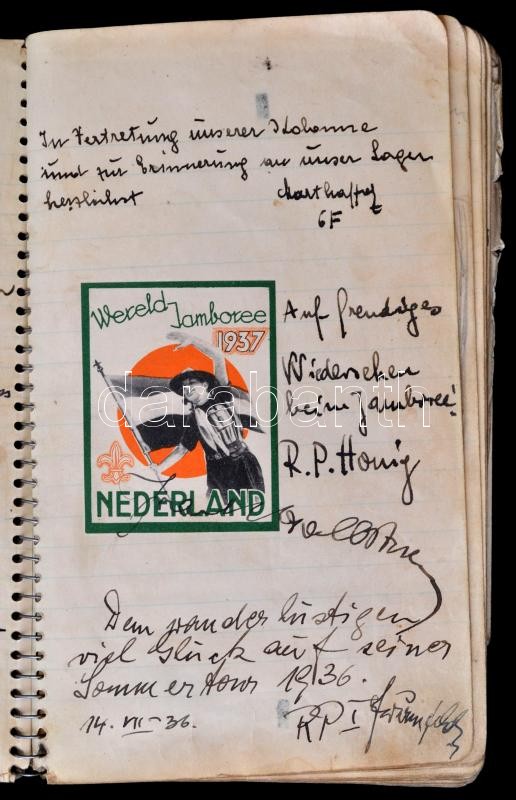 In Vertretung unserer
und zur Erinnerung an unser Lager
herzlichst
6F
Wereld Jamboree
1937
NEDERLAND
Auf freudiges
Wiedersehen
beim Jamboree!
R.P. Honig
darabanth
Dem wanderlustigen
viel Glück auf seiner
Sommertour 1936.
14. VII-36.
RP I